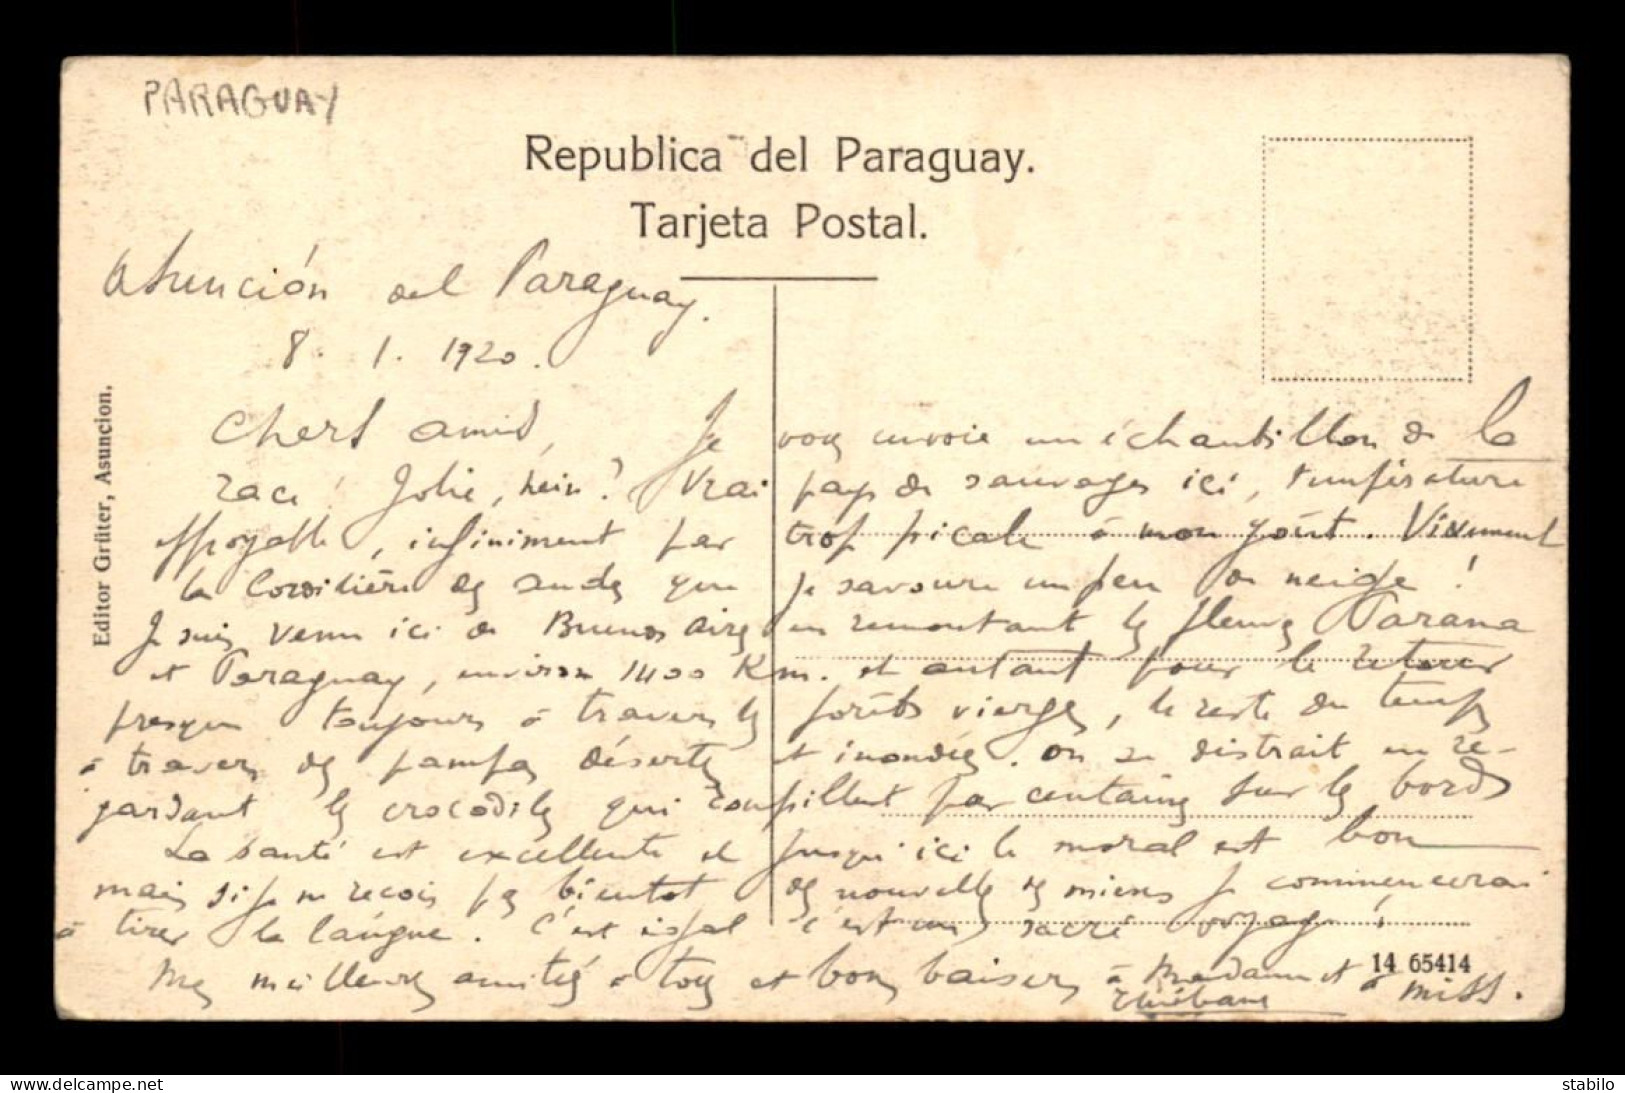 PARAGUAY
Republica del Paraguay.
Tarjeta Postal.
Asunción del Paraguay.
8. 1. 1920.
Editor Grüter, Asuncion.
Chers amis, Je vous envoie un échantillon de la
race! Jolie, hein? Vrai pays de sauvages ici, température
effroyable, infiniment par trop picale à mon goût. Vivement
la Cordilière des Andes que je savoure un peu de neige!
Je suis venu ici de Buenos Aires en remontant les fleuves Parana
et Paraguay, environ 1400 Km. et autant pour le retour
presque toujours à travers les forêts vierges, le reste du temps
à travers des pampas désertes et inondées. On se distrait en re-
gardant les crocodiles qui roupillent par centaines sur les bords
La santé est excellente et jusqu'ici le moral est bon
mais si je ne reçois pas bientot des nouvelles des miens je commencerai
à tirer la langue. C'est égal c'est un sacré voyage!
14 65414
Mes meilleures amitiés à tous et bons baisers à Madame et à miss.
www.delcampe.net
stabilo